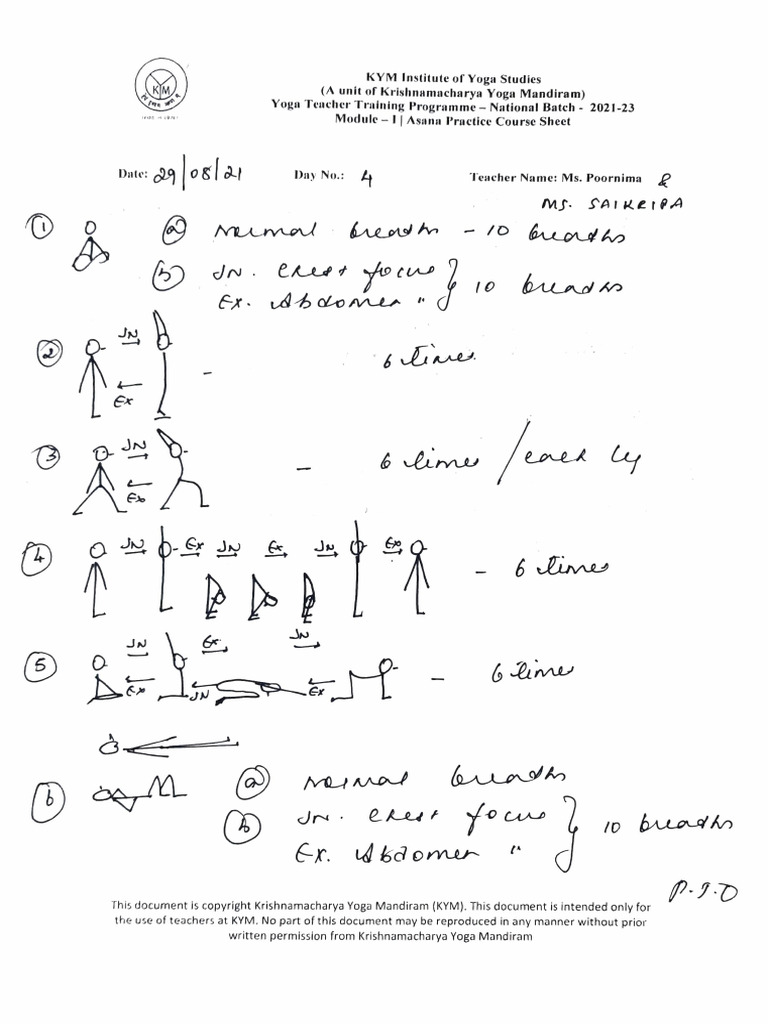 KYM
KYM Institute of Yoga Studies
(A unit of Krishnamacharya Yoga Mandiram)
Yoga Teacher Training Programme – National Batch - 2021-23
Module – I | Asana Practice Course Sheet
Date: 29/08/21 Day No.: 4 Teacher Name: Ms. Poornima &
MS. SAIKRIPA
1 a Normal breaths - 10 breaths
b IN. Chest focus } 10 breaths
EX. Abdomen "
2 IN EX - 6 times
3 IN EX - 6 times / each leg
4 IN EX IN EX IN EX - 6 times
5 IN EX IN
EX IN EX - 6 times
6 a Normal breaths
b IN. Chest focus } 10 breaths
EX. Abdomen "
P.T.O
This document is copyright Krishnamacharya Yoga Mandiram (KYM). This document is intended only for
the use of teachers at KYM. No part of this document may be reproduced in any manner without prior
written permission from Krishnamacharya Yoga Mandiram